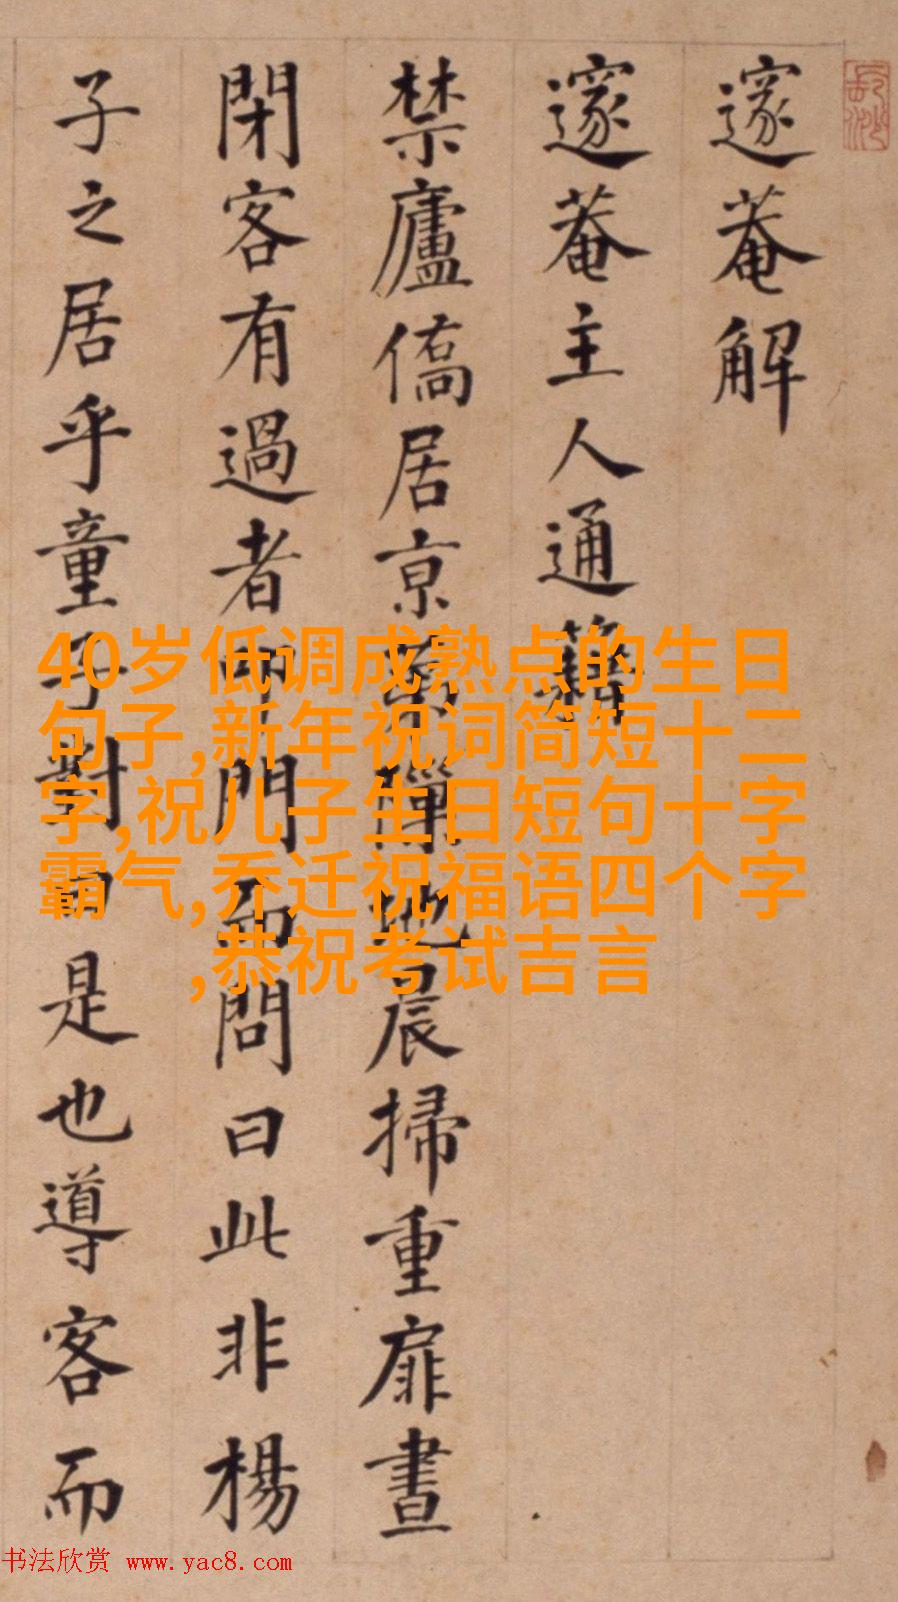 邃菴解
邃菴主人通籍
禁廬僑居京地晨掃重扉晝
閉客有過者叩門而問曰此非楊
子之居乎童子對曰是也導客而
40岁低调成熟点的生日
句子,新年祝词简短十二
字,祝儿子生日短句十字
霸气,乔迁祝福语四个字
,恭祝考试吉言
书法欣赏 www.yac8.com